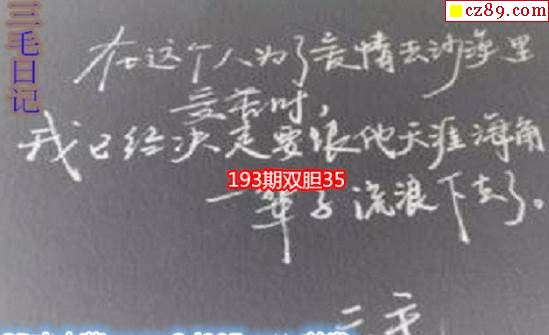 三毛日记
cz89.com
在这个人为了爱情去沙漠里
受苦时，
我已经决定要跟他天涯海角
193期双胆35
一辈子流浪下去了。
三毛